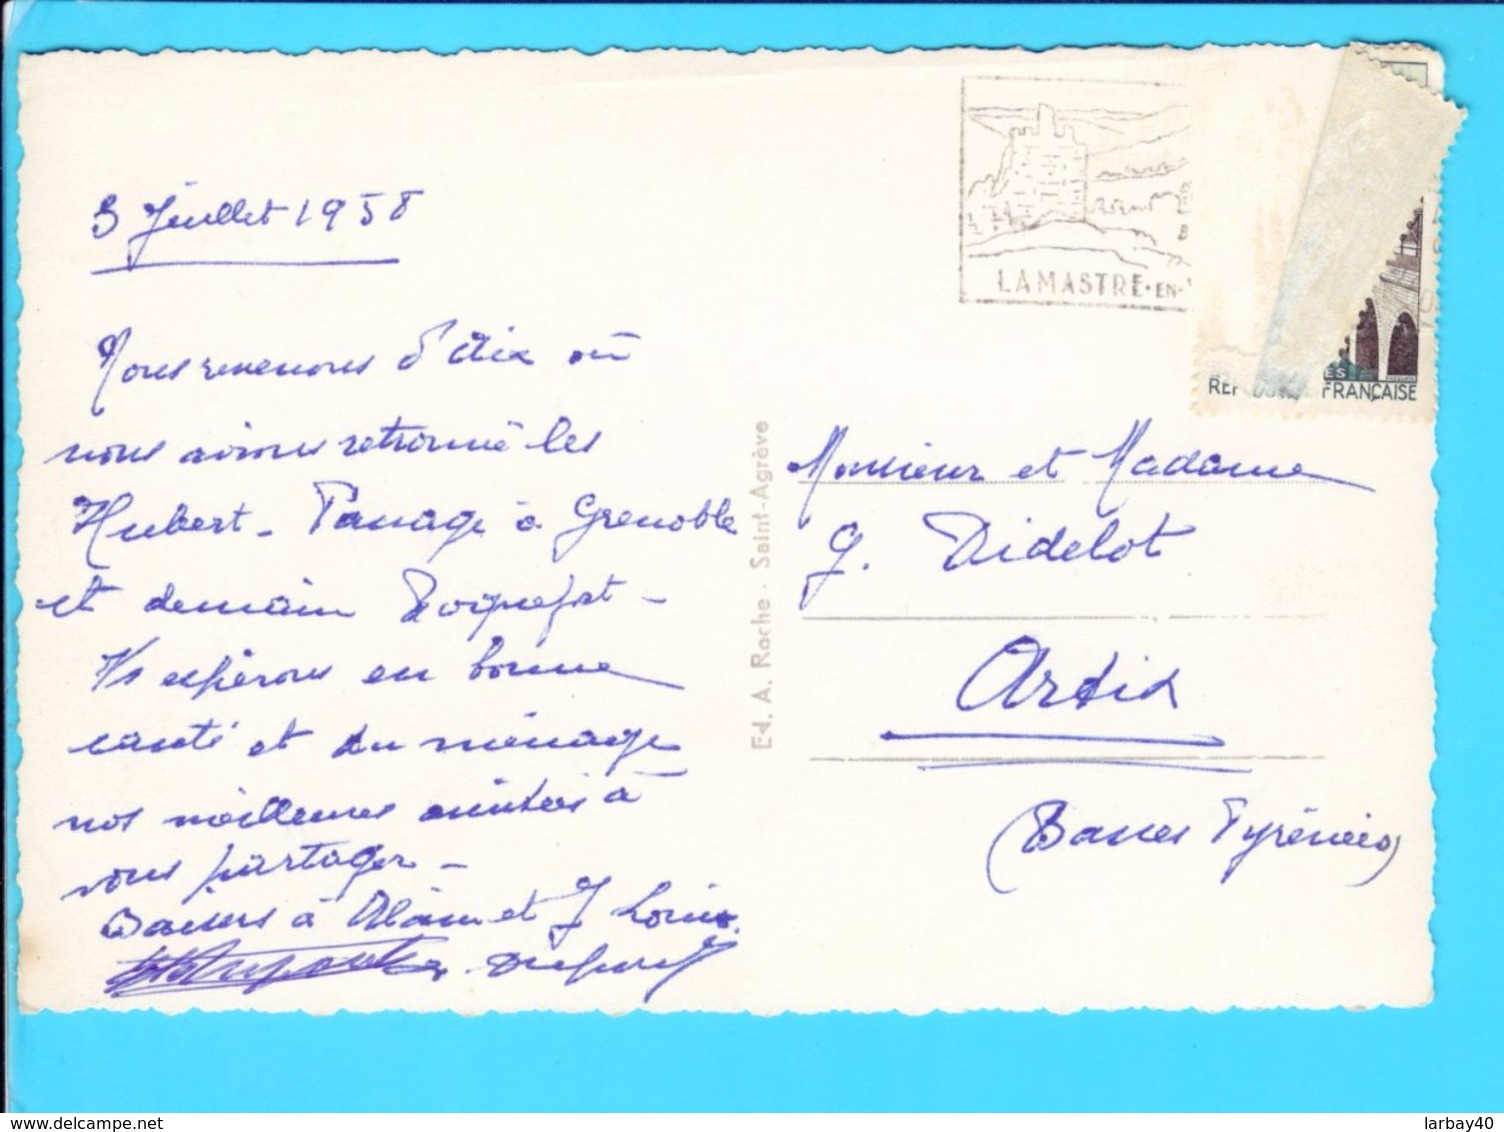 3 juillet 1958
Nous revenons d'Aix où
nous avions retrouvé les
Hubert - Passage à Grenoble
et demain Roquefort -
Vs espérons en bonne
santé et du ménage
nos meilleures amitiés à
vous partager -
Baisers à Alain et J Louis.
Dupont
LAMASTRE-EN-
RÉPU FRANÇAISE
Ed. A. Roche - Saint-Agrève
Monsieur et Madame
G. Didelot
Artix
(Basses Pyrénées)
delcampe.net
larbay40